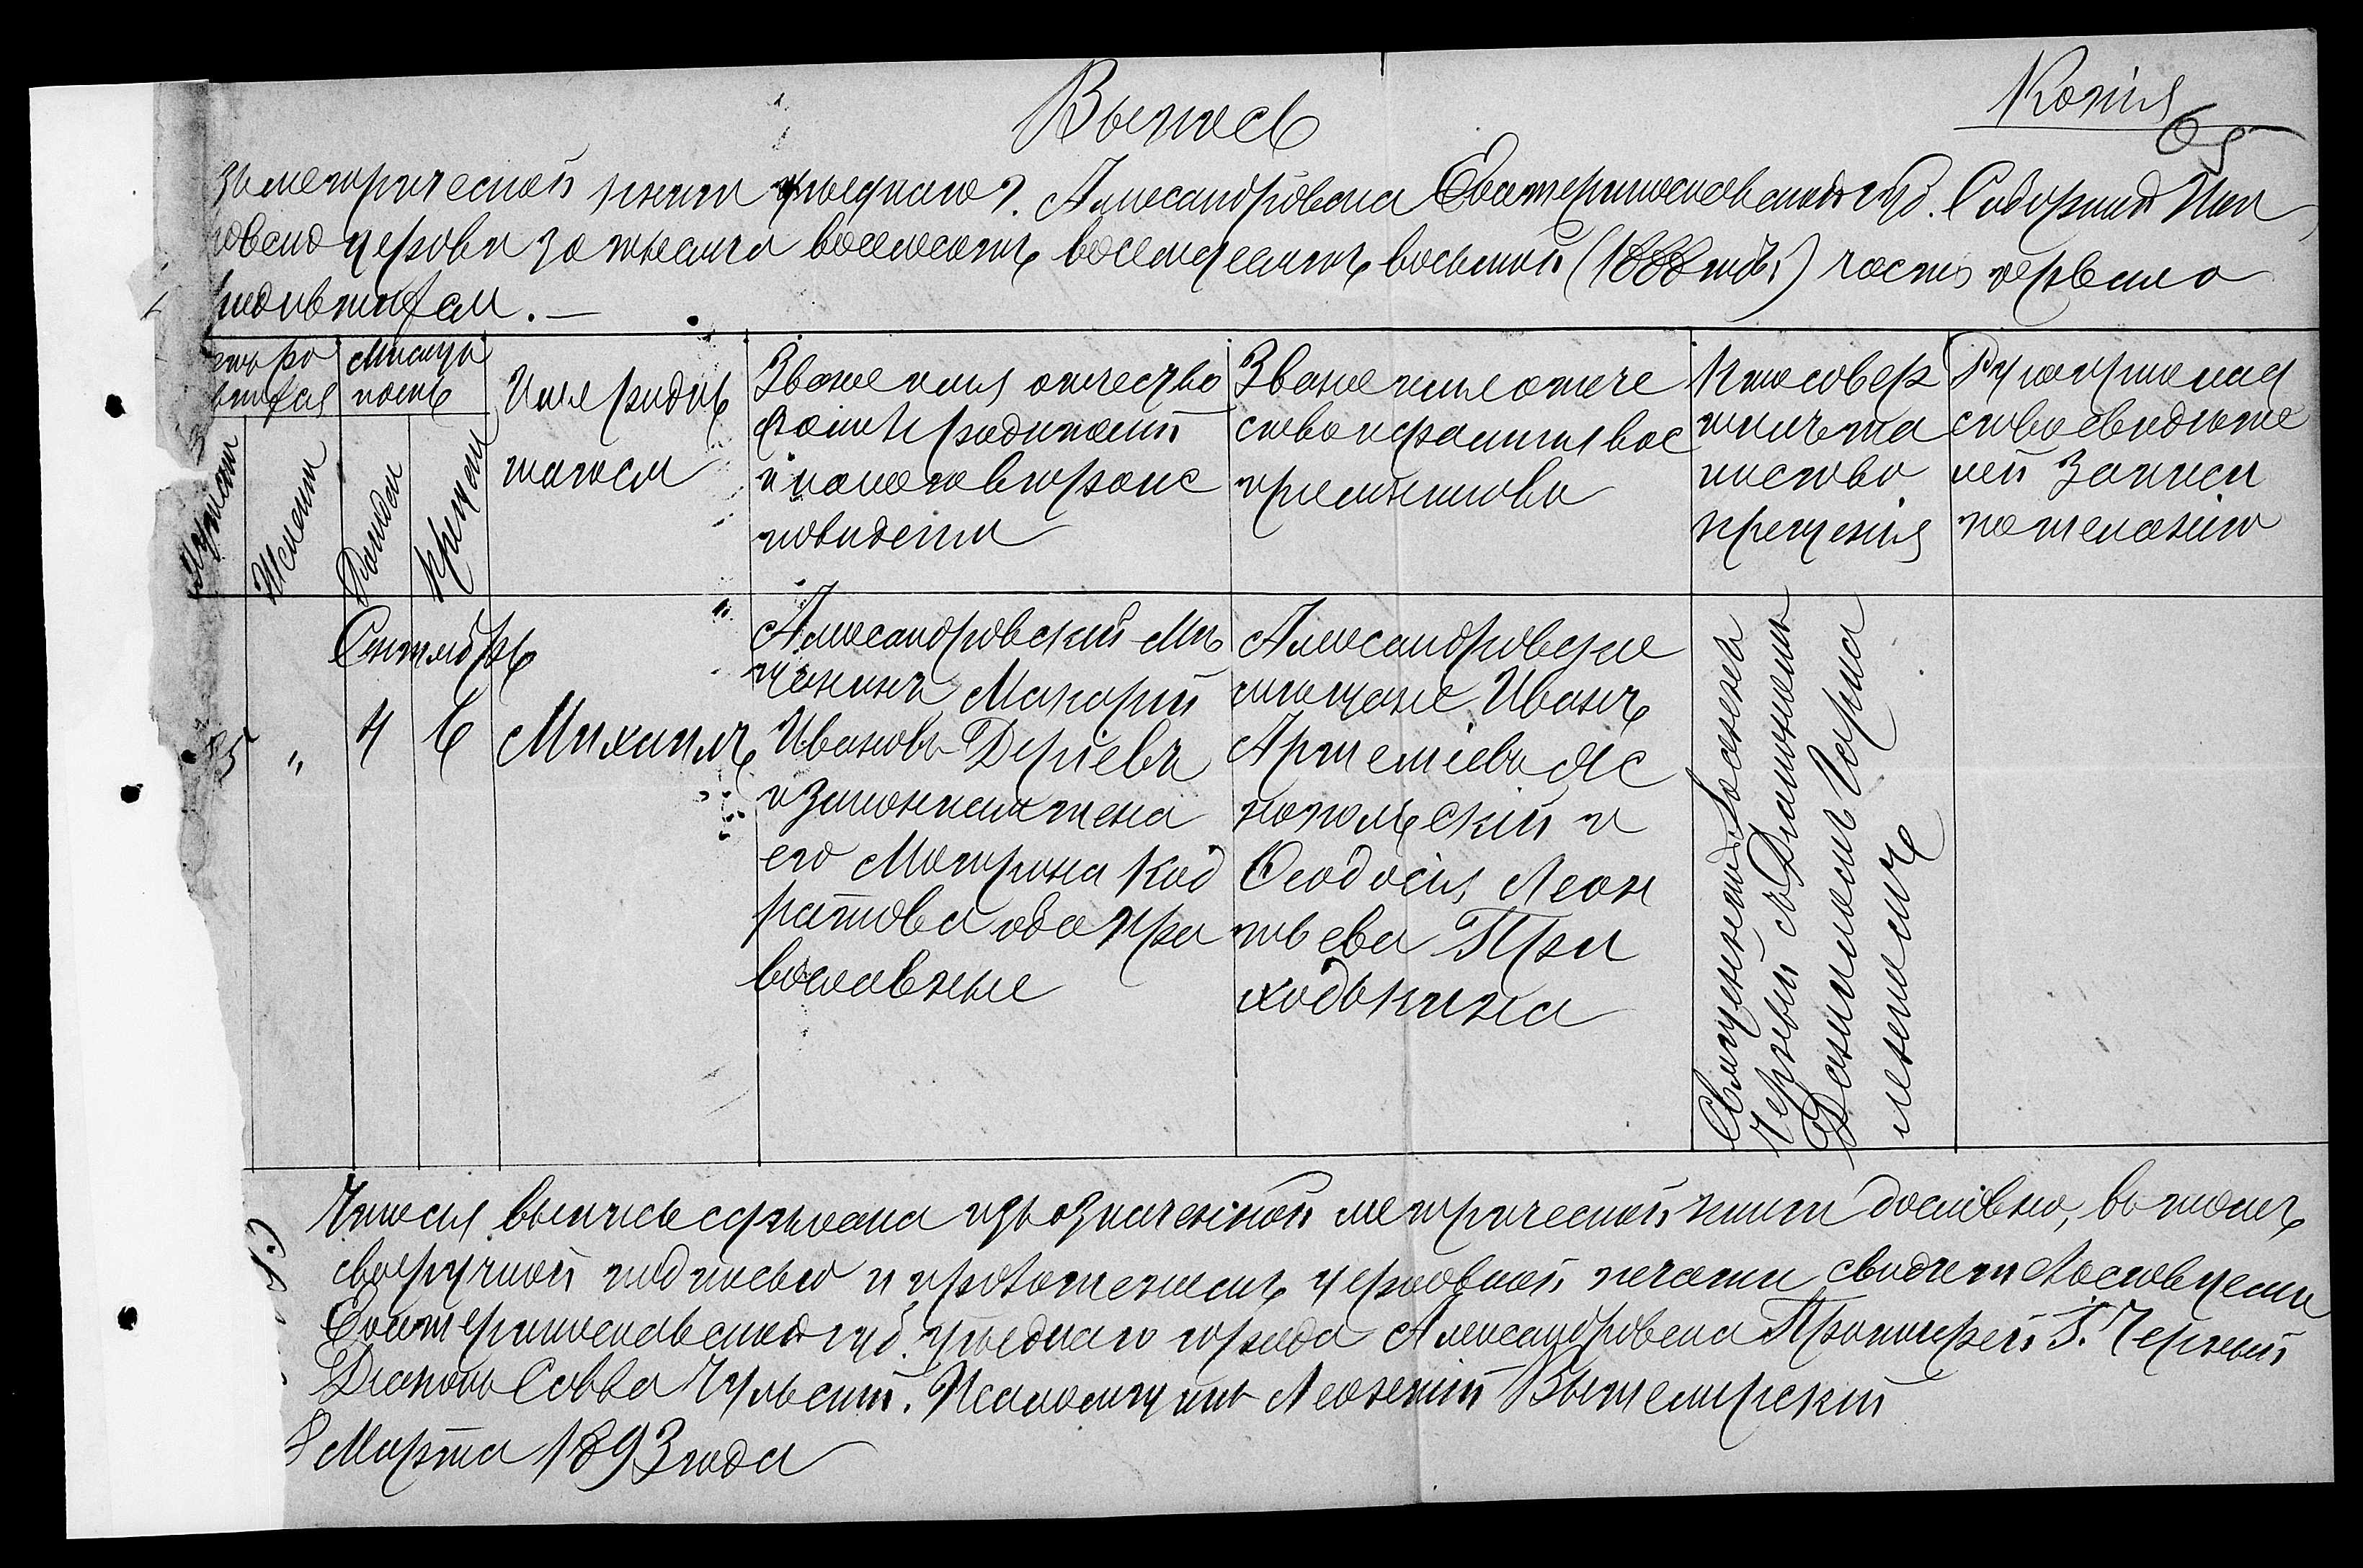 Копія
65
Выпись
изъ метрической книги уѣзднаго г. Александровска Екатеринославской губ. Соборной Пок
ровской церкви за тысяча восемьсотъ восемьдесятъ восьмой (1888 годъ) часть первая о
родившихся. —
Мѣсяцъ
и день
Мужеск
Женскаго
Рожденія
Крещенія
Имя родив
шагося
Званіе имя отчество
фамилія родителей
и какого вѣроис
повѣданія
Званіе имя отче
ство и фамилія вос
пріемниковъ
Кто совер
шилъ та
инство
крещенія
Рукоприклад
ство свидѣте
лей записи
по желанію
Сентябрь
85 " 4 6 Михаилъ
Александровскій мѣ
щанинъ Макарій
Ивановъ Дергіевъ
и законная жена
его Матрина Код
ратова оба пра
вославные
Александровскіе
мѣщане Иванъ
Артеміевъ Яс
нопольскій и
Ѳеодосія Леон
тьева При
ходькина
Священникъ
Черный съ Діакономъ
8 Марта 1893 года
Чтосія выпись сдѣлана изъ означенной метрической книги дословно, въ томъ
своеручной подписью и приложеніемъ церковной печати свидѣтельствуемъ
Екатеринославской губ. уѣзднаго города Александровска Протоіерей Г. Черный
Діаконъ Савва Чульскій. Псаломщикъ Леонтій